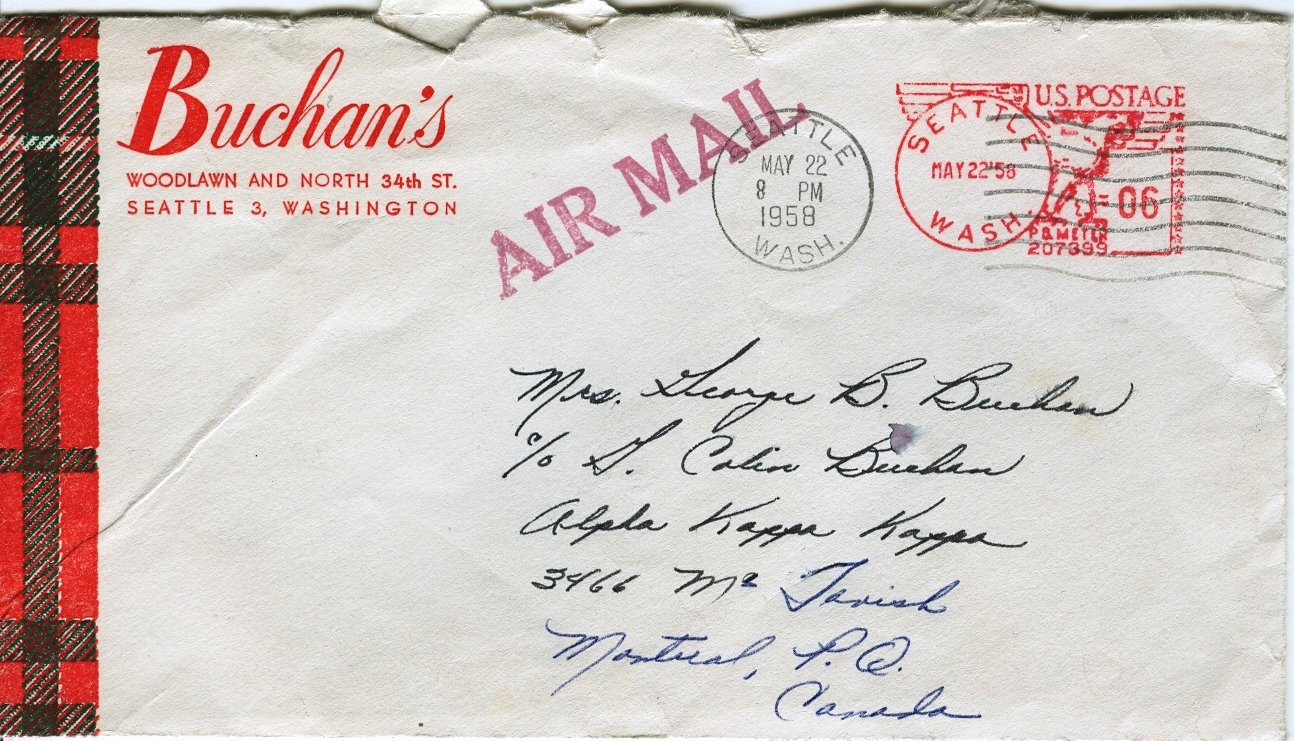 Buchan's
WOODLAWN AND NORTH 34th ST.
SEATTLE 3, WASHINGTON
AIR MAIL
SEATTLE
MAY 22
8 PM
1958
WASH.
SEATTLE
MAY 22 '58
WASH.
U.S. POSTAGE
06
P.B. METER
207399
Mrs. George B. Buchan
c/o G. Colin Buchan
Alpha Kappa Kappa
3466 Mc Tavish
Montreal, P. Q.
Canada